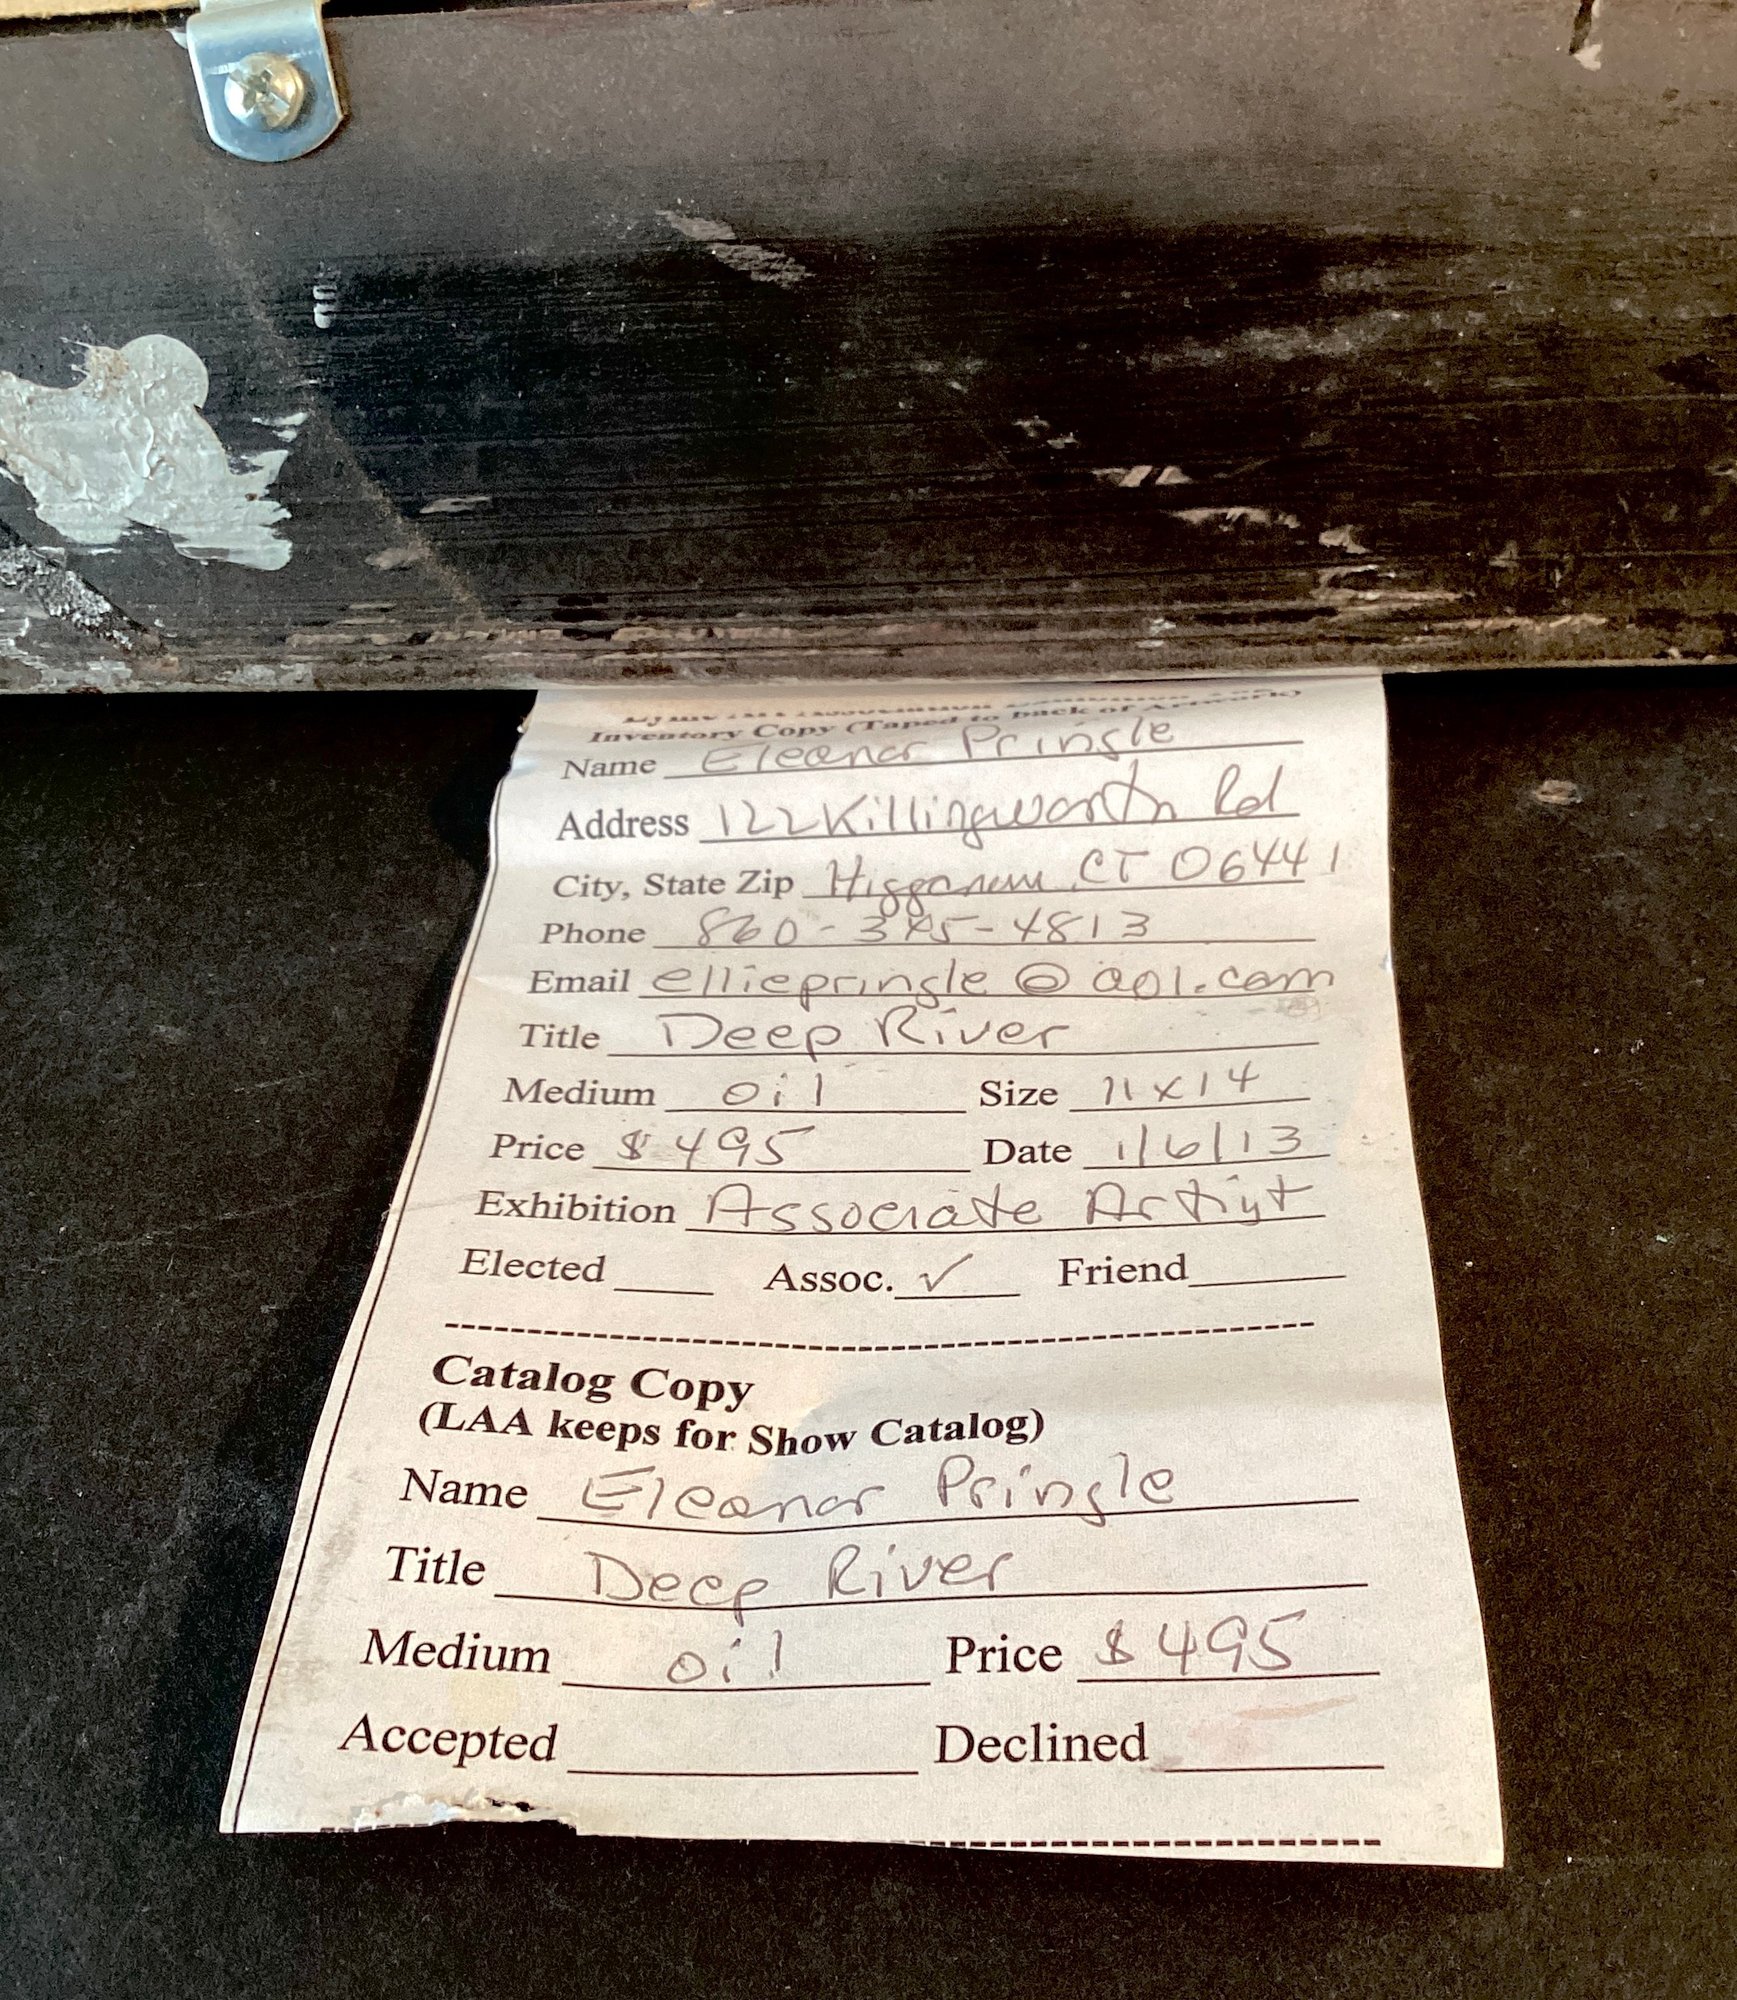 Inventory Copy (Taped to back of Artwork)
Name Eleanor Pringle
Address 122 Killingworth Rd
City, State Zip Higganum CT 06441
Phone 860-345-4813
Email elliepringle@aol.com
Title Deep River
Medium oil Size 11x14
Price $495 Date 1/6/13
Exhibition Associate Artist
Elected Assoc. ✓ Friend
Catalog Copy
(LAA keeps for Show Catalog)
Name Eleanor Pringle
Title Deep River
Medium oil Price $495
Accepted Declined